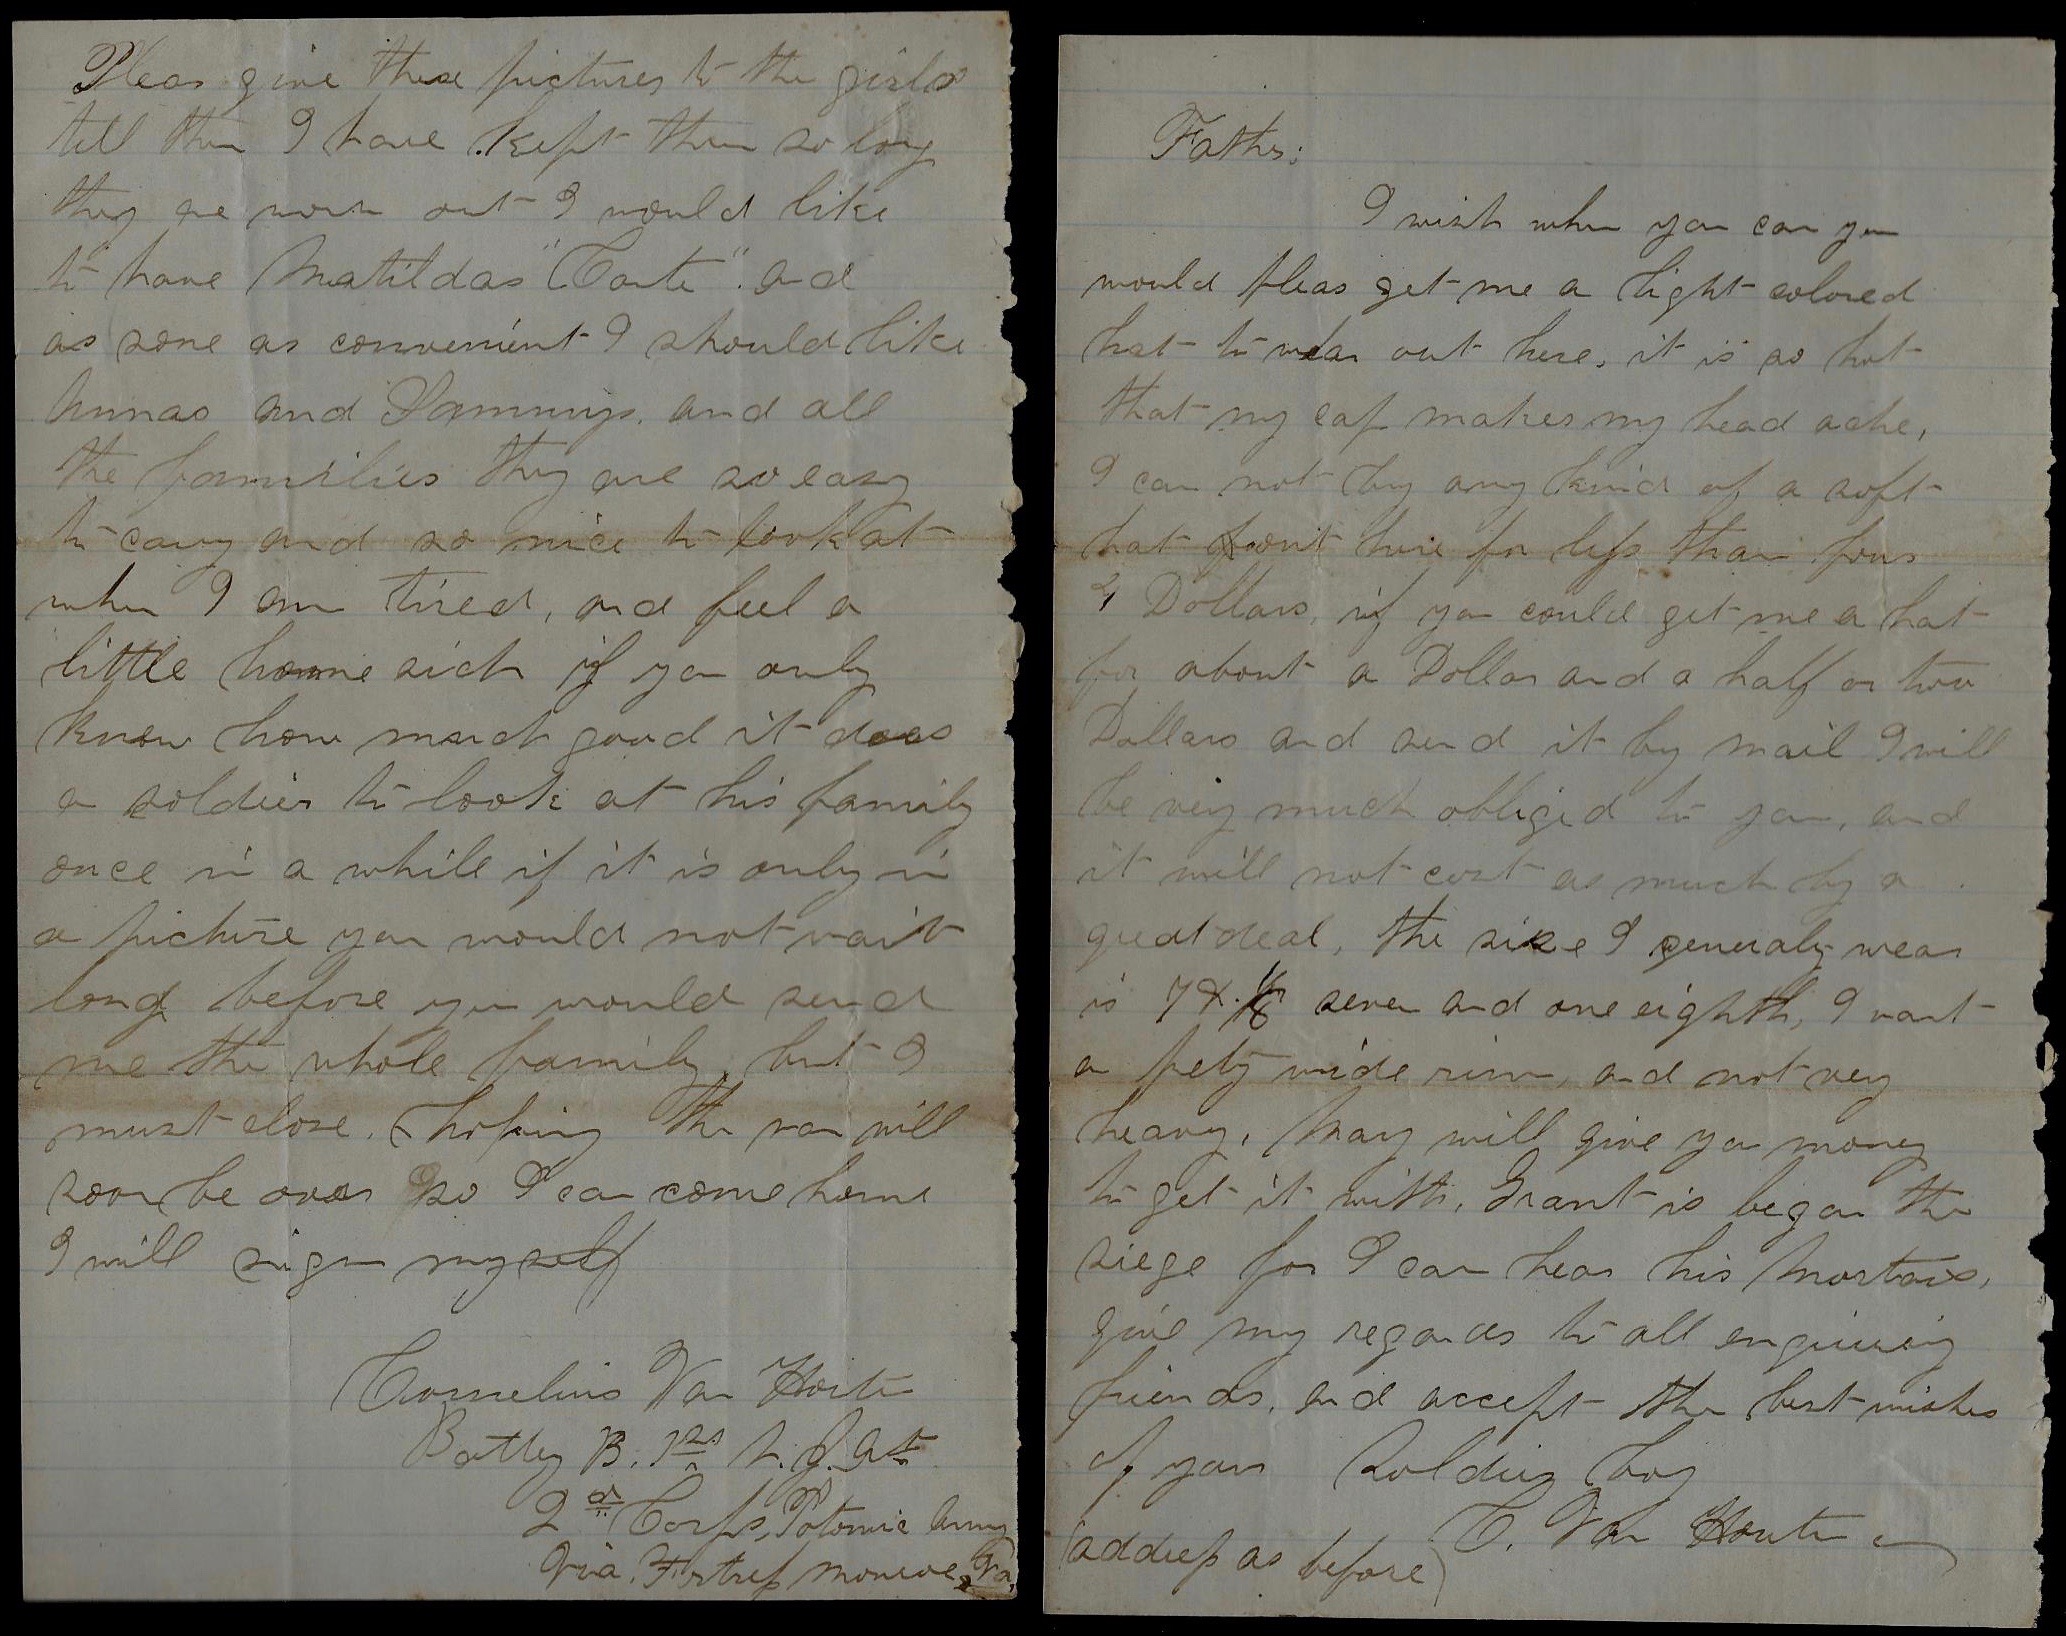 Pleas give these pictures to the girls
tell them I have kept them so long
they are worn out I would like
to have Matildas "Carte" and
as sone as convenient I should like
Annas and Sammys. and all
the families they are so easy
to cary and so nice to look at
when I am tired, and feel a
little home sick if you only
knew how much good it does
a soldier to look at his family
once in a while if it is only in
a picture you would not wait
long before you would send
me the whole family, but I
must close. hoping the war will
soon be over so I can come home
I will sign myself
Cornelius Van Houten
Battey B. 1st N. J. Art.
2d Corps, Potomic Army
Via. Fortress Monroe, Va,
Father:
I wish when you can you
would pleas get me a light colored
hat to wear out here, it is so hot
that my cap makes my head ache,
I can not buy any kind of a soft
hat out here for less than four
4 Dollars, if you could get me a hat
for about a Dollar and a half or two
Dollars and send it by mail I will
be very much obliged to you, and
it will not cost as much by a
great deal, the size I generaly wear
is 7 & 1/8 seven and one eighth, I want
a pety wide rim, and not very
heavy, Mary will give you money
to get it with, Grant is began the
siege for I can hear his Mortars,
give my regards to all enquiring
friends, and accept the best wishes
of your Soldier boy
C. Van Houten
(address as before)